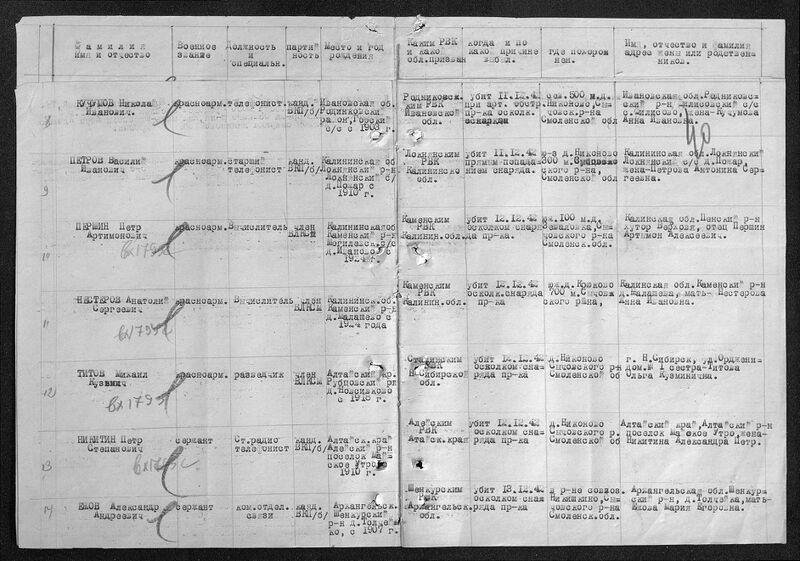 Фамилия имя и отчество
Военное звание
Должность и специальн.
партийность
Место и год рождения
Каким РВК и какой обл.призван
когда и по какой причине выбыл
где похоронен.
Имя, отчество и фамилия адрес жены или родственников.
8
КУЧУМОВ Николай Иванович.
красноарм.
телефонист
канд. ВКП/б/
Ивановская об. Родниковски район,Горски с/с с 1903 г.
Родниковск. РВК Ивановско обл.
убит 11.12.42 при арт. обстр. пр-ка осколк. снаряда
сев.500 м.д. Никоново,Сычовск.р-на Смоленско обл
Ивановская обл.Родниковски р-н с/с жена-Кучумова Анна Ивановна.
40
9
ПЕТРОВ Васили Иванович
красноарм.
старши телефонист
канд. ВКП/б/
Калининская об Локнянски р-н Локнянски с/ д.Пожар с 1910 г.
Локнянским РВК Калининско обл.
убит 11.12.42 прямым попаданием снаряда.
ю-в д.Никоново 300 м. ского р-на, Смоленско обл
Калининская обл.Локнянски Локнянски с/с д.Пожар, жена-Петрова Антонина Сергеевна.
10
ПЕРШИН Петр Артимонович
вх1795с
красноарм.
Вычислитель
член ВЛКСМ
Калининская об Каменски р-н с/с д.Иваново с 1924 г.
Каменским РВК Калинин.обл.
убит 12.12.42 осколком снаряда пр-ка.
юж.100 м.д. човского р-на Смоленск.обл.
Калинская обл.Пенски р-н хутор Верховя, отец Першин Артимон Алексеевич.
11
НЕСТЕРОВ Анатоли Сергеевич
вх1795с
красноарм.
Вычислитель
член ВЛКСМ
Калининск.об Каменски р-н д.Малашево с 1924 года
Каменским РВК Калинин.обл.
убит 12.12.42 осколк.снаряда пр-ка
юж.д. Крюково 700 м. Сычовского рна,
Калинская обл.Каменски р-н д.Малашева, мать- Нестерова Анна Ивановна.
12
ТИТОВ Михаил Кузьмич
вх1795
красноарм.
разведчик
член ВЛКСМ
Алтайский кр. Рубцовски рн д.Новсивково с 1918 г.
Сталинским РВК Н.Сибирско обл.
убит 12.12.42 осколком снаряда пр-ка
д.Никоново Сычовского рн Смоленско об
г. Н.Сибирск, ул.Орджени дом.№ 1 сестра-Титова Ольга Кузминична.
13
НИКИТИН Петр Степанович
вх1795с
сержант
Ст.радио телефонист
канд. ВКП/б/
Алтайск.край Алейски р-н поселок Майское Утро 1910 г.
Алейским РВК Алтайск.края
убит 12.12.42 осколком снаряда пр-ка
д.Никоново Сычовского р. Смоленско об
Алтайски край,Алтайски р-н поселок Майское Утро,жена- Никитина Александра Петр.
14
ЕХОВ Александр Андреевич
сержант
ком.отдел. связи
канд. ВКП/б/
Архангельск. Шенкурски р-н д. с 1907 г.
Шенкурским РВК Архангельск. обл.
убит 13.12.42 осколком снаряда пр-ка
в р-не совхоз. Никишкино, Сычовск.р-на Смоленск.обл.
Архангельская обл.Шенкурски р-н, мать- Ехова Мария Егоровна.